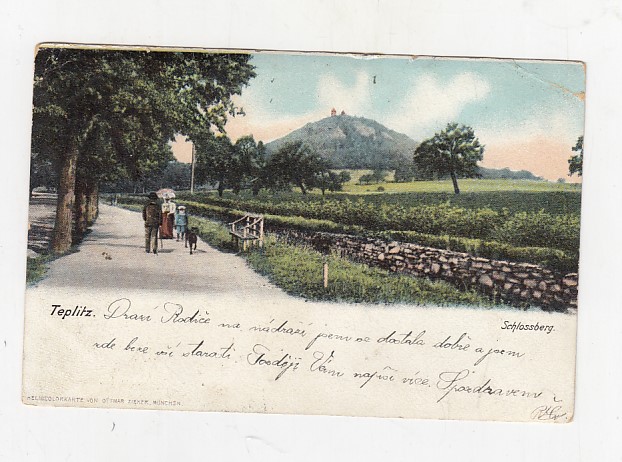 Teplitz.
Schlossberg.
Drazí Rodiče na nádraží jsem se dostala dobře a jsem
zde bez vší starosti. Později Vám napíši více. Spozdravem
HELIOCOLORKARTE VON OTTMAR ZIEHER, MÜNCHEN